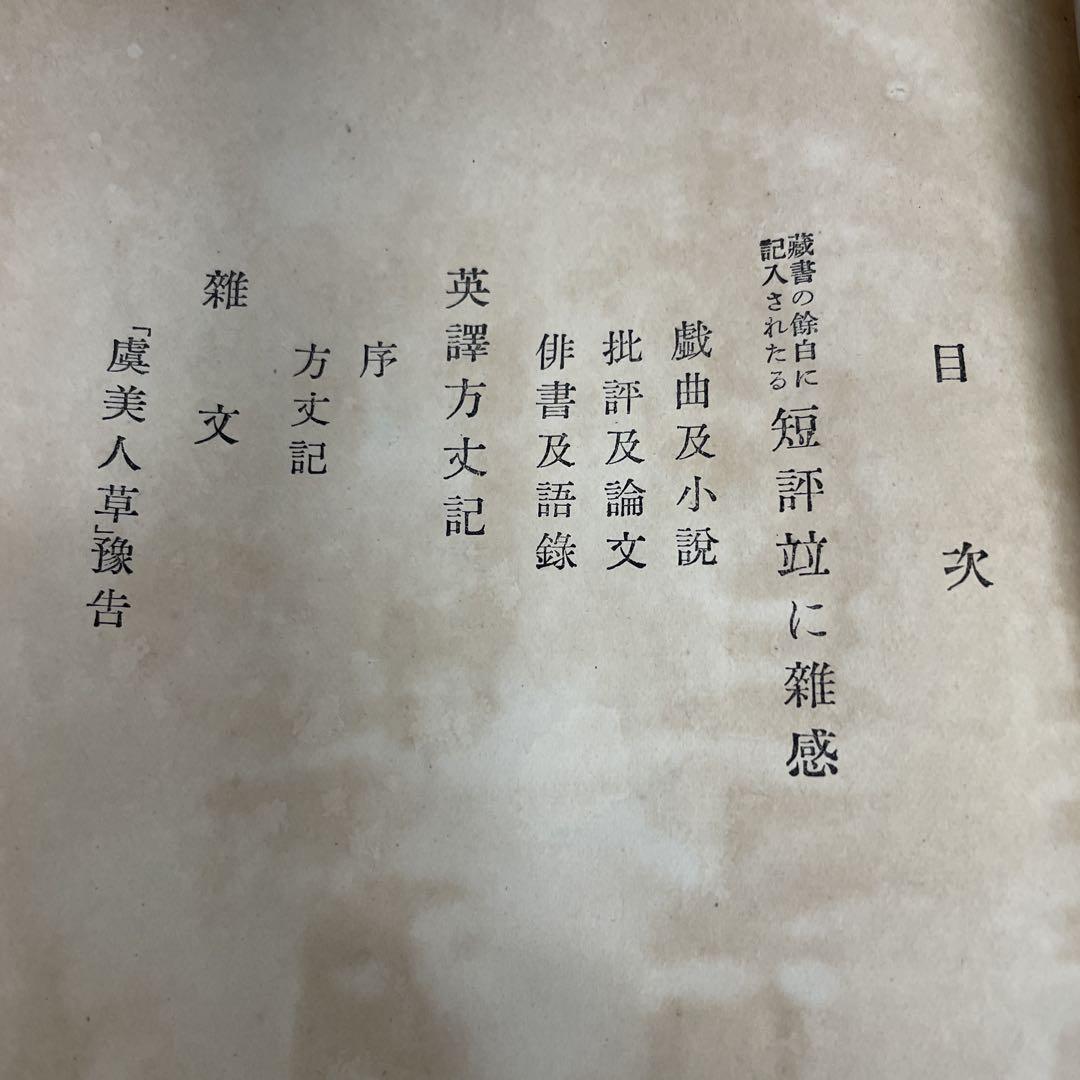 目次
藏書の餘白に
記入されたる
短評竝に雜感
戲曲及小說
批評及論文
俳書及語錄
英譯方丈記
序
方丈記
雜文
「虞美人草」豫吿